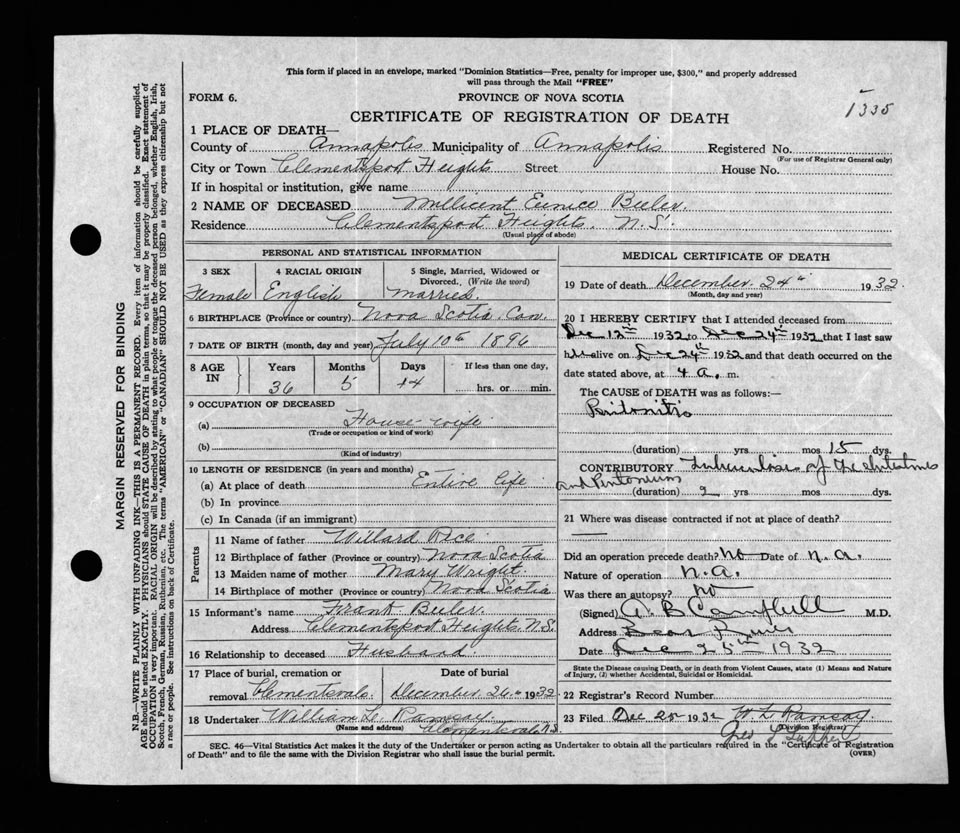 This form if placed in an envelope, marked "Dominion Statistics—Free, penalty for improper use, $300," and properly addressed
will pass through the Mail "FREE"
FORM 6.
PROVINCE OF NOVA SCOTIA
1335
CERTIFICATE OF REGISTRATION OF DEATH
1 PLACE OF DEATH—
County of Annapolis Municipality of Annapolis Registered No.
(For use of Registrar General only)
City or Town Clementsport Heights Street House No.
If in hospital or institution, give name
2 NAME OF DECEASED Millicent Eunice Beeler.
Residence Clementsport Heights. N.S.
(Usual place of abode)
PERSONAL AND STATISTICAL INFORMATION
3 SEX 4 RACIAL ORIGIN 5 Single, Married, Widowed or
Divorced. (Write the word)
Female English married.
6 BIRTHPLACE (Province or country) Nova Scotia Can.
7 DATE OF BIRTH (month, day and year) July 10th 1896
8 AGE IN Years Months Days If less than one day,
36 5 14 hrs. or min.
9 OCCUPATION OF DECEASED
(a) House-wife
(Trade or occupation or kind of work)
(b)
(Kind of industry)
10 LENGTH OF RESIDENCE (in years and months)
(a) At place of death Entire life
(b) In province
(c) In Canada (if an immigrant)
Parents
11 Name of father Willard Rice
12 Birthplace of father (Province or country) Nova Scotia
13 Maiden name of mother Mary Wright
14 Birthplace of mother (Province or country) Nova Scotia
15 Informant's name Frank Beeler.
Address Clementsport Heights N.S.
16 Relationship to deceased Husband
17 Place of burial, cremation or Date of burial
removal Clementsvale. December 26th 1932
18 Undertaker William L. Ramsay
(Name and address) Clementsvale N.S.
MEDICAL CERTIFICATE OF DEATH
19 Date of death December 24th 1932.
(Month, day and year)
20 I HEREBY CERTIFY that I attended deceased from
Dec 12th 1932 to Dec 24th 1932 that I last saw
her alive on Dec 24th 1932 and that death occurred on the
date stated above, at 4 a. m.
The CAUSE OF DEATH was as follows:—
Peritonitis
(duration) yrs mos 15 dys.
CONTRIBUTORY Tuberculosis of the Intestines
and Peritoneum
(duration) 2 yrs mos dys.
21 Where was disease contracted if not at place of death?
Did an operation precede death? No Date of n.a.
Nature of operation n.a.
Was there an autopsy? no
(Signed) A B Campbell M.D.
Address Bear River
Date Dec 25th 1932
State the Disease causing Death, or in death from Violent Causes, state (1) Means and Nature
of Injury, (2) whether Accidental, Suicidal or Homicidal.
22 Registrar's Record Number
23 Filed Dec 25 1932 W L Ramsay
Division Registrar
Geo
SEC. 46—Vital Statistics Act makes it the duty of the Undertaker or person acting as Undertaker to obtain all the particulars required in the "Certificate of Registration
of Death" and to file the same with the Division Registrar who shall issue the burial permit.
(OVER)
MARGIN RESERVED FOR BINDING
N.B.—WRITE PLAINLY WITH UNFADING INK—THIS IS A PERMANENT RECORD. Every item of information should be carefully supplied.
AGE should be stated EXACTLY. PHYSICIANS should STATE CAUSE OF DEATH in plain terms, so that it may be properly classified. Exact statement of
OCCUPATION is very important. RACIAL ORIGIN will be described by stating to what people or tongue the deceased person belonged, whether English, Irish,
Scotch, French, German, Russian, Ruthenian, etc. The terms "AMERICAN" or "CANADIAN" SHOULD NOT BE USED as they express citizenship but not
a race or people. See instructions on back of Certificate.